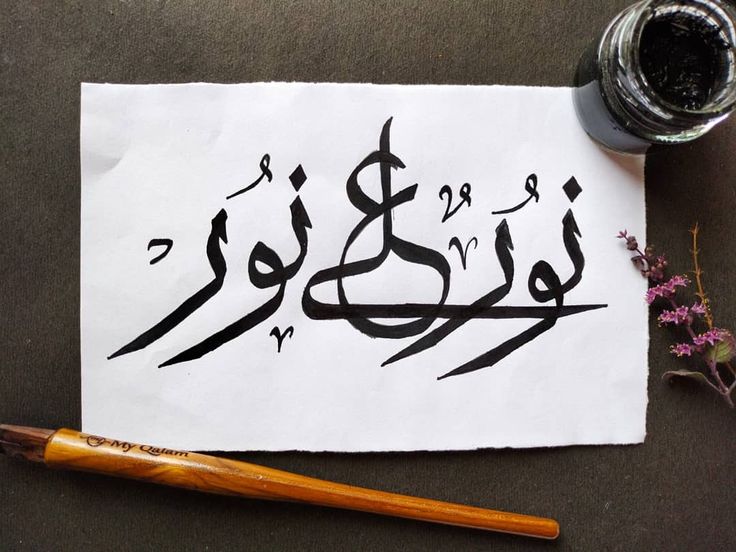 نُورٌ على نُور
My Qalam